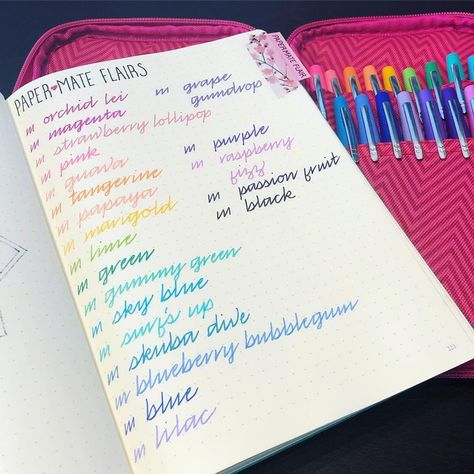 PAPER♥MATE FLAIRS
PAPERMATE FLAIR
m orchid lei
m magenta
m strawberry lollipop
m pink
m guava
m tangerine
m papaya
m marigold
m lime
m green
m gummy green
m sky blue
m surf's up
m skuba dive
m blueberry bubblegum
m blue
m lilac
m grape
gumdrop
m purple
m raspberry
fizz
m passion fruit
m black